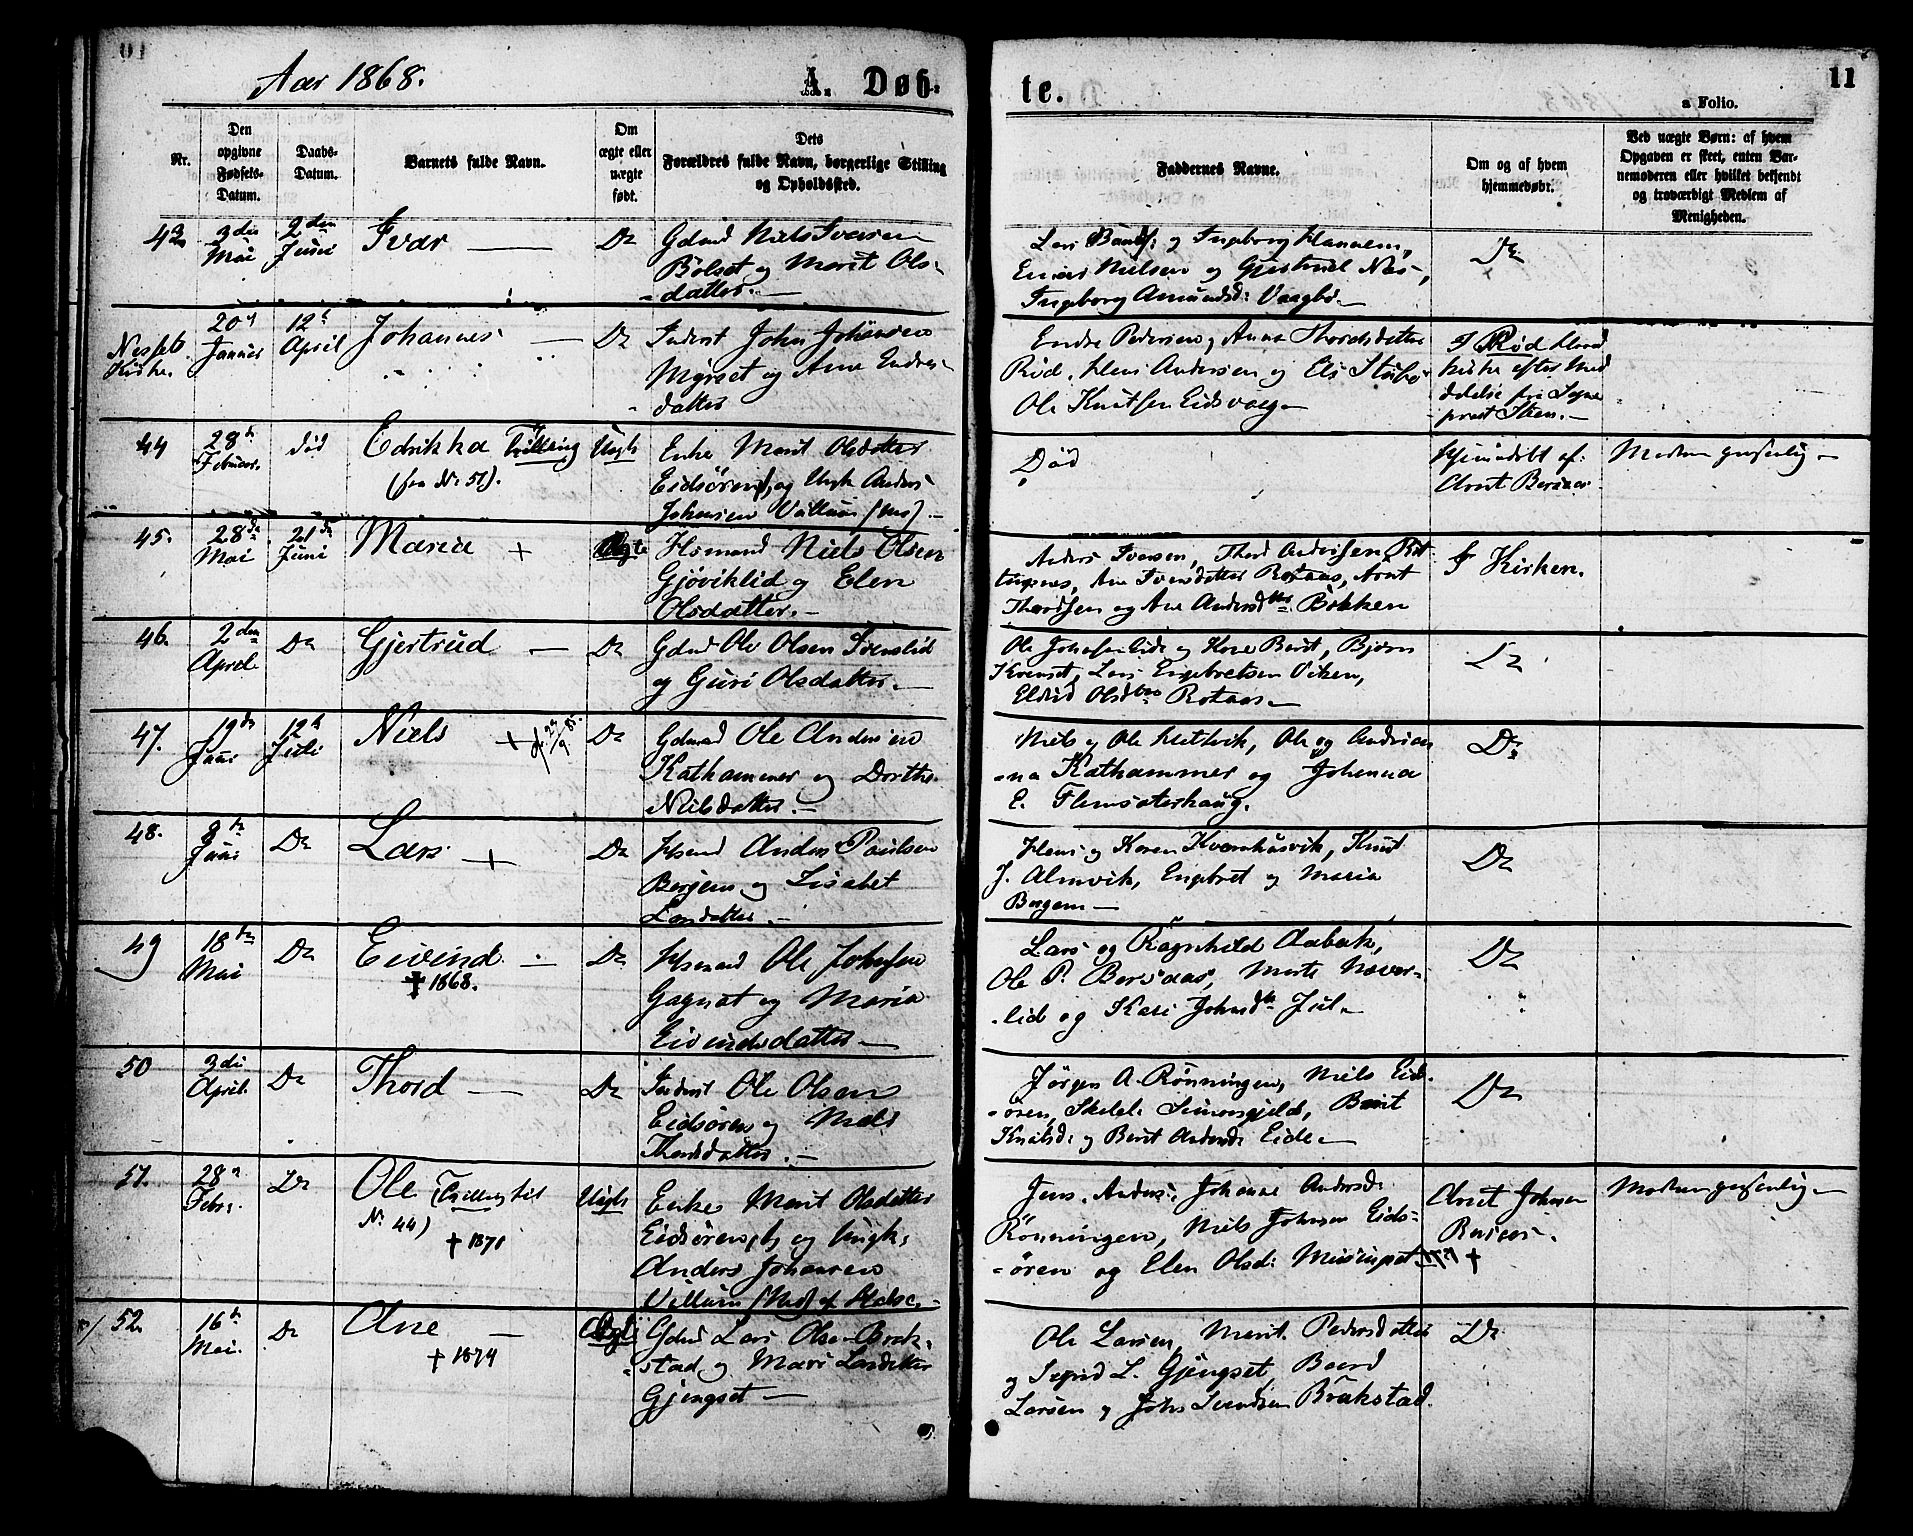 Aar 1868.
A. Døb-
te.
11
a Folio.
Nr.
Den opgivne Fødsels-Datum.
Daabs-Datum.
Barnets fulde Navn.
Om ægte eller uægte født.
Dets Forældres fulde Navn, borgerlige Stilling og Opholdssted.
Faddernes Navne.
Om og af hvem hjemmedøbt.
Ved uægte Børn: af hvem Opgaven er skeet, enten Barnemoderen eller hvilket bekjendt og troværdigt Medlem af Menigheden.
43 3die Mai 2den Juni Ivar Do
Gdmd Niels Iversen
Bolset og Marit Ols-
datter.
Ingeborg Hannem,
Einar Nielsen og Gjertrud
Ingeborg Amundsd: Vaagbø
Do
Nesset Kirke. 20 Januar 12 April Johannes Do
Inderst John Johansen
Myrset og Ane Endres-
datter
Endre Pedersen og Anna Thordsdatter
Rød, Hans Andersen og Els Stubø
Ole Knutsen Eidsvaag
I Rød Hoved
kirke efter Med
delelse fra Sogne
prest Steen.
44 28 Februar død Edrikka Trilling
(fra No 51).
Uægte
Enke Marit Olsdatter
Eidsøren, og Ungk Anders
Johansen
Død
Hjemmedøbt af
Arnt Bersaas
Moderen personlig
45. 28de Mai 21de Juni Maria + Ægte
Hsmand Niels Olsen
Gjøviklid og Elen
Olsdatter.
Anders Iversen, Thord Andersen
Ane Iversdatter Rotaas, Arnt
Thordsen og Ane Andersdtr Bokken
I Kirken.
46. 2den April Do Gjertrud Do
Gdmd Ole Olsen Svenslid
og Guri Olsdatter.
Ole Johnsen Eide og Kone Berit, Bjørn
Lars Engebretsen Viken,
Eldrid Olsdtr Rotaas
Do
47. 19de Juni 12te Juli Niels + d. 23/9 85. Do
Gdmd Ole Andersen
Kathammer og Dorthe
Nilsdatter.
Nils og Ole Meltvik, Ole og Andrian
-na Kathammer og Johanna
E. Flemsæterhaug.
Do
48. 8de Juni Do Lars + Do
Hsmd Anders Paulsen
Bergem og Lisabet
Larsdatter.
Hans og Karen Kvernhusvik, Knut
J. Almvik, Engebret og Maria
Bergem
Do
49 18de Mai Do Eivind Do
✝ 1868.
Hsmand Ole Johnsen
Gagnat og Maria
Eivindsdatter
Lars og Ragnhild Aabak,
Ole P. Bersaas, Marte Næver-
-lid og Kari Johnsdtr Jul
Do
50 3die April Do Thord Do
Inderst Ole Olsen
Eidsøren og Mali
Thordsdatter.
Jørgen A. Rønningen, Niels Eids-
-øren, Simonsgjeld, Berit
Knutsd: og Berit Andersd: Eide
Do
51. 28 Febr. Do Ole (Trilling til
No 44) ✝ 1871
Uægte
Enke Marit Olsdatter
Eidsøren, og Ungk.
Anders Johansen
Jens Anders: Johanne Andersd:
Rønningen, Niels Johnsen Eids-
-øren og Elen Olsd:
Arnt Johnsen
Bersaas.
Moderen personlig
52. 16de Mai Do Ane Ægte
✝ 1874
Gdmd Lars Olsen Brak-
stad og Mari Larsdatter
Gjengset
Ole Larsen, Marit Pedersdatter
og Ingrid L. Gjengset, Baard
Larsen og John Svendsen Brakstad.
Do